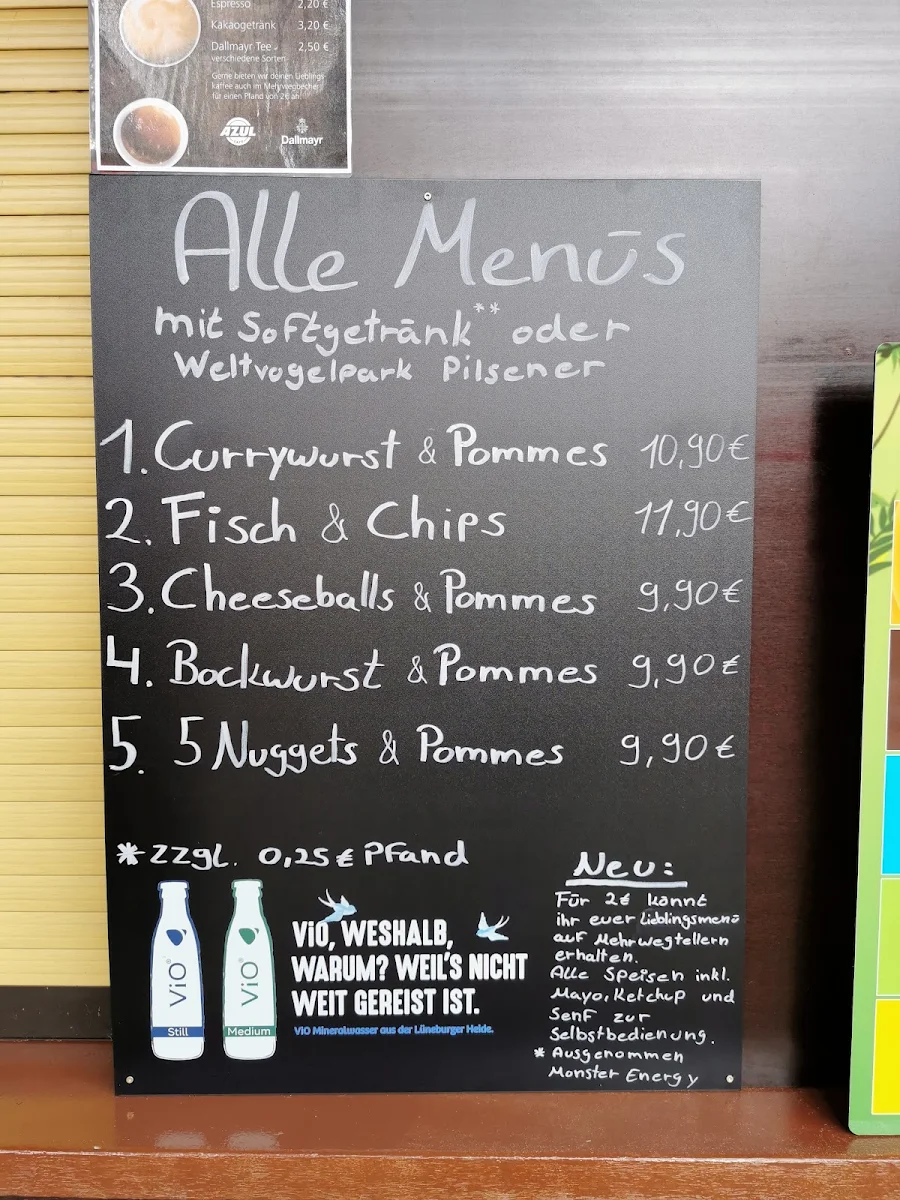 Espresso 2,20 €
Kakaogetränk 3,20 €
Dallmayr Tee 2,50 €
verschiedene Sorten
Gerne bieten wir deinen Lieblings-
kaffee auch im Mehrwegbecher
für einen Pfand von 2€ an.
AZUL Dallmayr
Alle Menüs
mit Softgetränk** oder
Weltvogelpark Pilsener
1. Currywurst & Pommes 10,90€
2. Fisch & Chips 11,90€
3. Cheeseballs & Pommes 9,90€
4. Bockwurst & Pommes 9,90€
5. 5 Nuggets & Pommes 9,90€
* zzgl. 0,25€ Pfand
ViO Still
ViO Medium
ViO, WESHALB,
WARUM? WEIL'S NICHT
WEIT GEREIST IST.
ViO Mineralwasser aus der Lüneburger Heide.
Neu:
Für 2€ kannt
ihr euer Lieblingsmenü
auf Mehrwegtellern
erhalten.
Alle Speisen inkl.
Mayo, Ketchup und
Senf zur
Selbstbedienung.
* Ausgenommen
Monster Energy